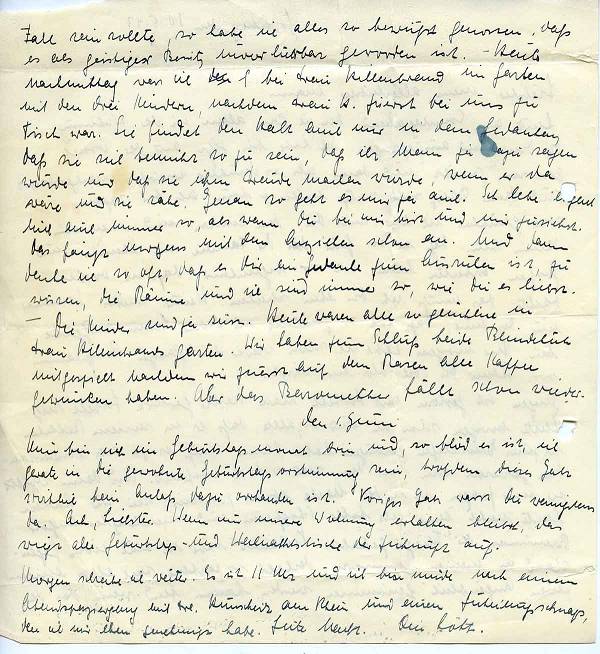 Fall sein sollte, so habe ich alles so bewußt genossen, daß
es als geistiger Besitz unverlierbar geworden ist. - Heute
nachmittag war ich bei Frau Hillenbrand im Garten
mit den drei Kindern, nachdem Frau H. zuerst bei uns zu
Tisch war. Sie findet den Halt auch nur in dem Gedanken,
daß sie sich bemüht so zu sein, daß ihr Mann ja dazu sagen
würde und daß sie ihm Freude machen würde, wenn er da
wäre und sie sähe. Genau so geht es mir ja auch. Ich lebe
mich auch immer so, als wenn Du bei mir bist und mir zusiehst.
Das fängt morgens mit dem Anziehen schon an. Und dann
denke ich so oft, daß es Dir ein Gedanke zum Ausruhen ist, zu
wissen, die Räume und sie sind immer so, wie Du es liebst.
- Die Kinder sind ja süss. Heute waren alle so glücklich in
Frau Hillenbrands Garten. Wir haben zum Schluß beide Blindekuh
mitgespielt nachdem wir zuerst auf dem Rasen alle Kaffee
getrunken haben. Aber das Barometer fällt schon wieder.
den 1. Juni
Nun bin ich im Geburtstagsmonat drin und, so blöd es ist, ich
gerate in die gewohnte Geburtstagsvorstimmung rein, trotzdem dieses Jahr
wirklich kein Anlaß dazu vorhanden ist. Voriges Jahr warst Du wenigstens
da. Ach, Liebster. Wenn nur unsere Wohnung erhalten bleibt, das
wiegt alle Geburtstags- und Weihnachtstische der auf.
Morgen schreibe ich weiter. Es ist 11 Uhr und ich bin müde nach einem
Abendspaziergang mit am Rhein und einem
den ich mir eben genehmigt habe. Gute Nacht. Dein